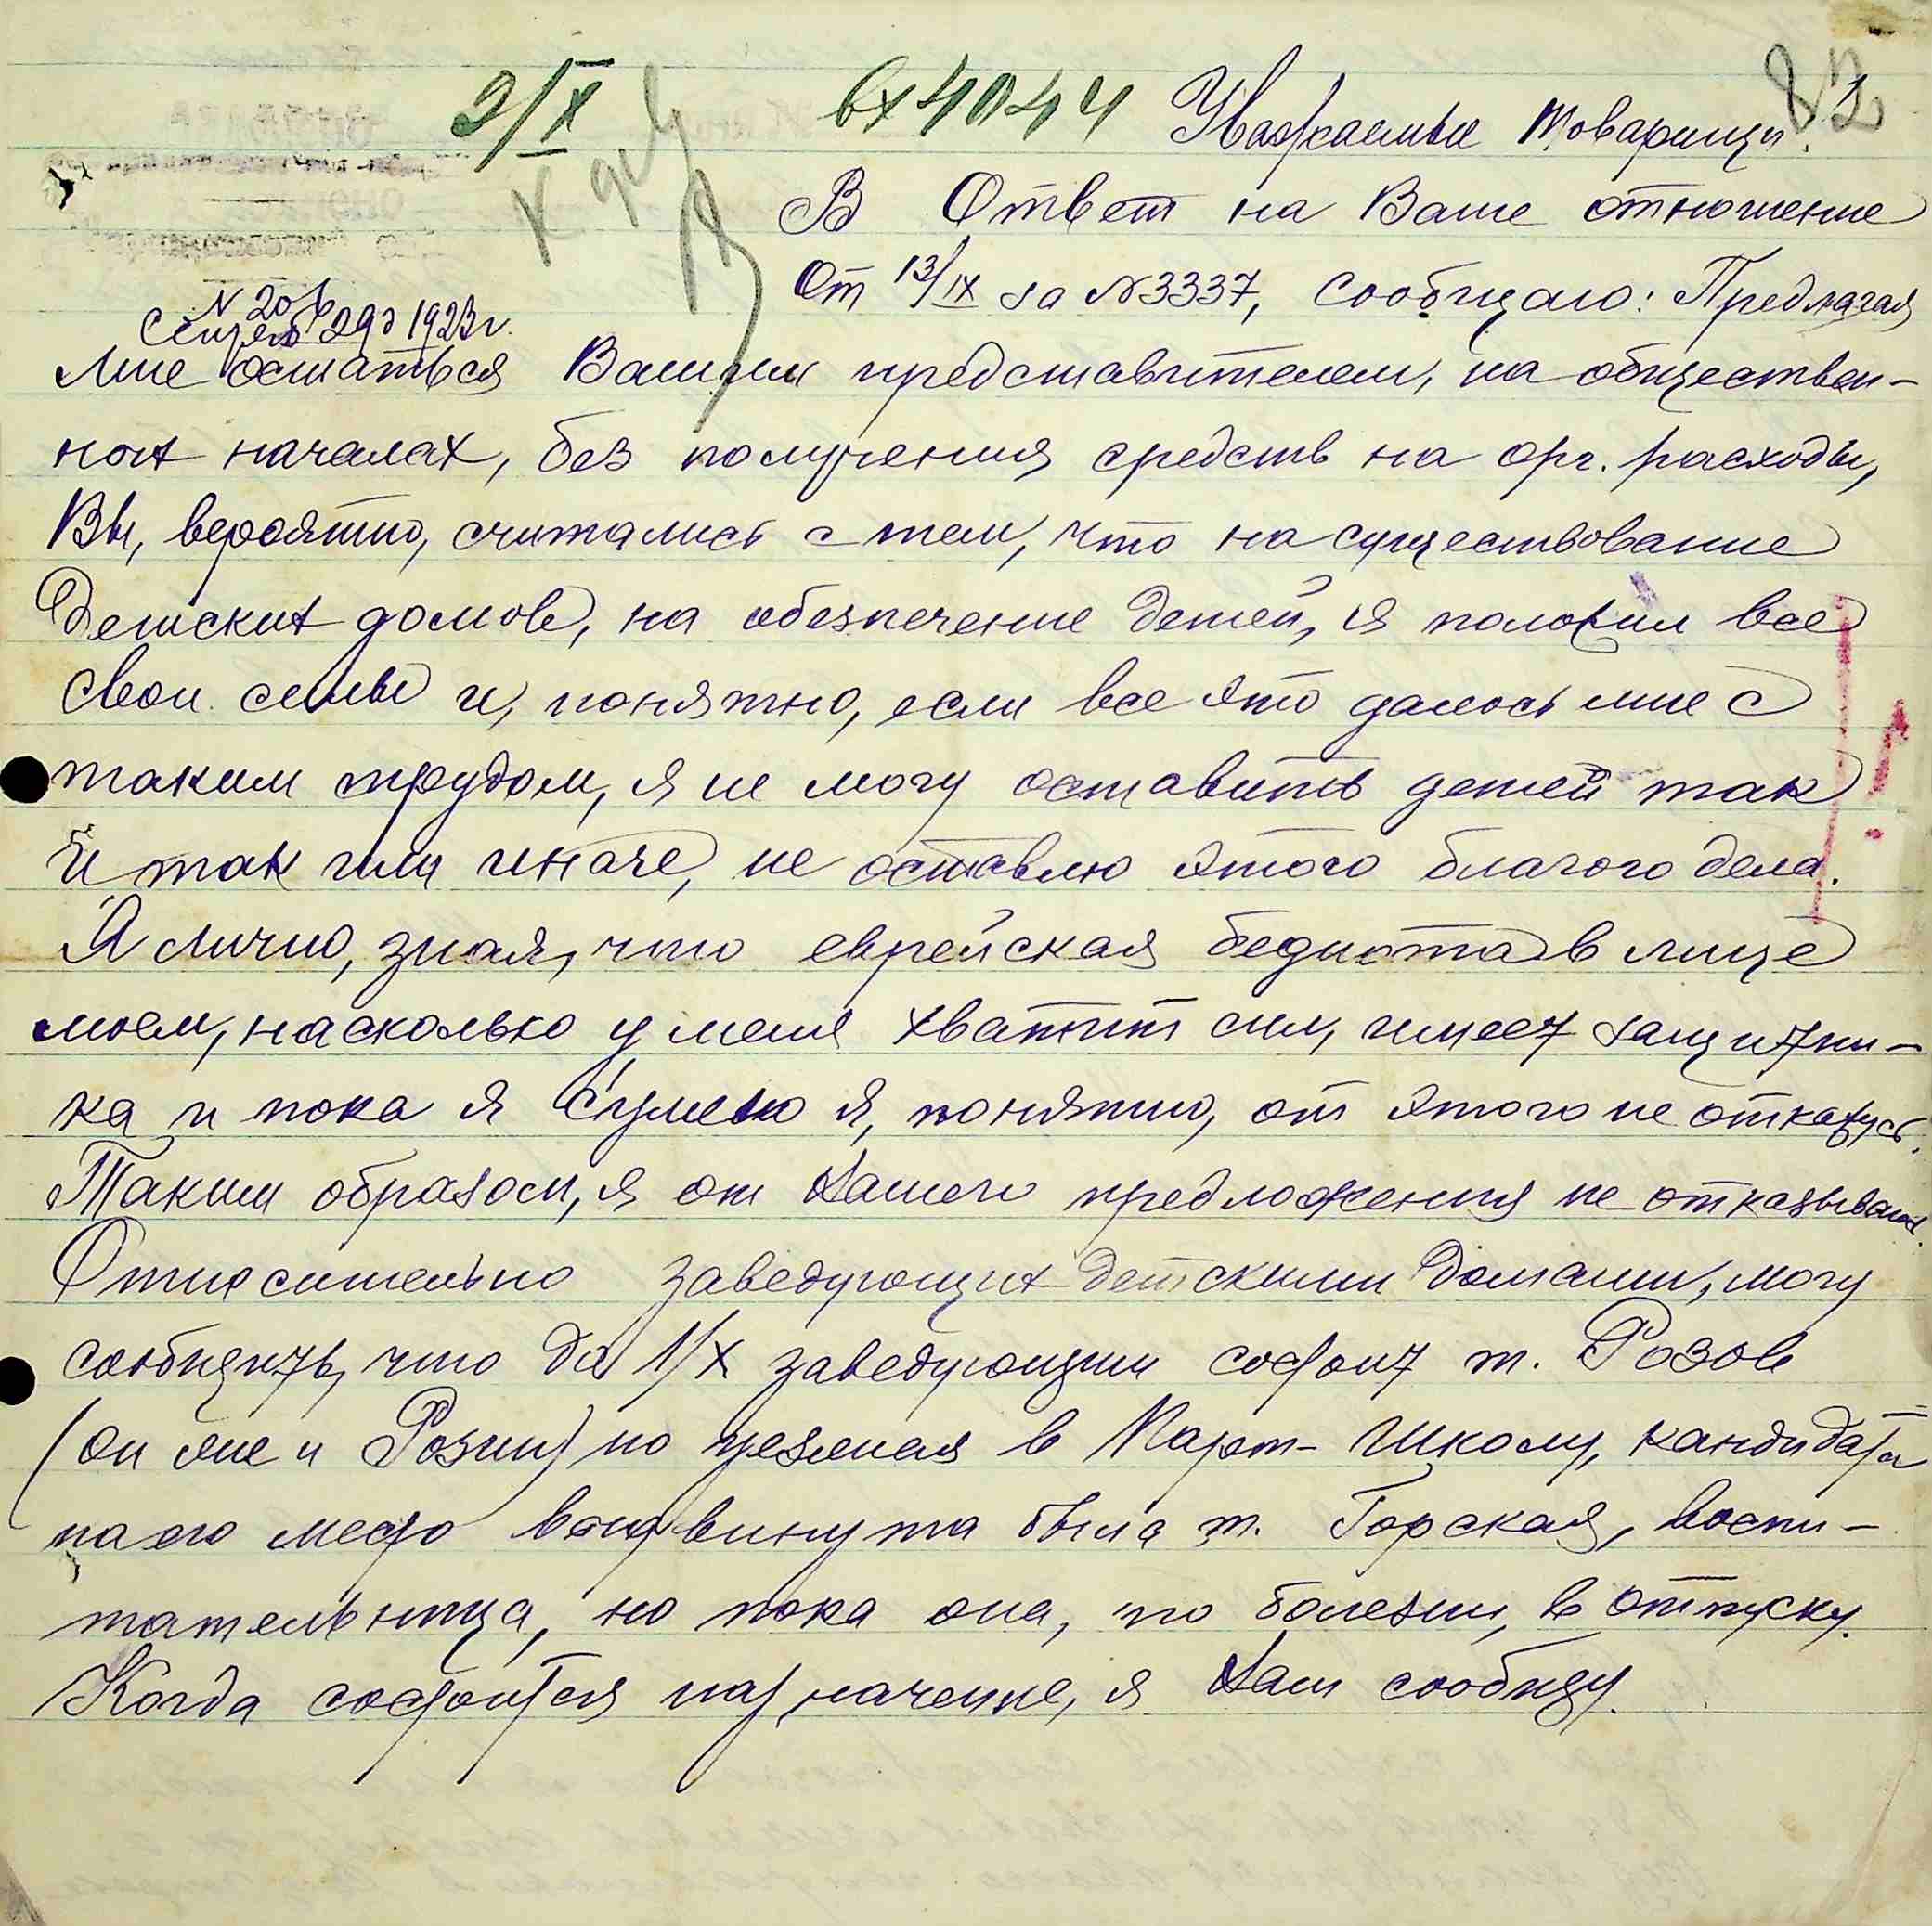 2/X вх 4044 82
Уважаемые Товарищи!
В Ответ на Ваше отношение
От 13/IX за N3337, сообщаю: Предлагая
N 206
Сентяб 29д 1923 г.
мне остаться Вашим представителем, на обществен-
ных началах, без получения средств на орг. расходы,
Вы, вероятно, считались с тем, что на существование
Детских домов, на обезпечение детей, я положил все
свои силы и, понятно, если все это далось мне с
таким трудом, я не могу оставить детей так
и так или иначе, не оставлю этого благого дела.
Я лично, зная, что еврейская беднота в лице
моем, насколько у меня хватит сил, имеет защитни-
ка и пока я сумею я, понятно, от этого не откажусь.
Таким образом, я от Вашего предложения не отказываюсь.
Относительно заведующих детскими домами, могу
сообщить, что до 1/X заведующим состоит т. Розов
(он же и Розин) но уезжая в Парт-Школу, кандидата
на его место выдвинута была т. Горская, воспи-
тательница, но пока она, по болезни, в отпуску.
Когда состоится назначение, я Вам сообщу.